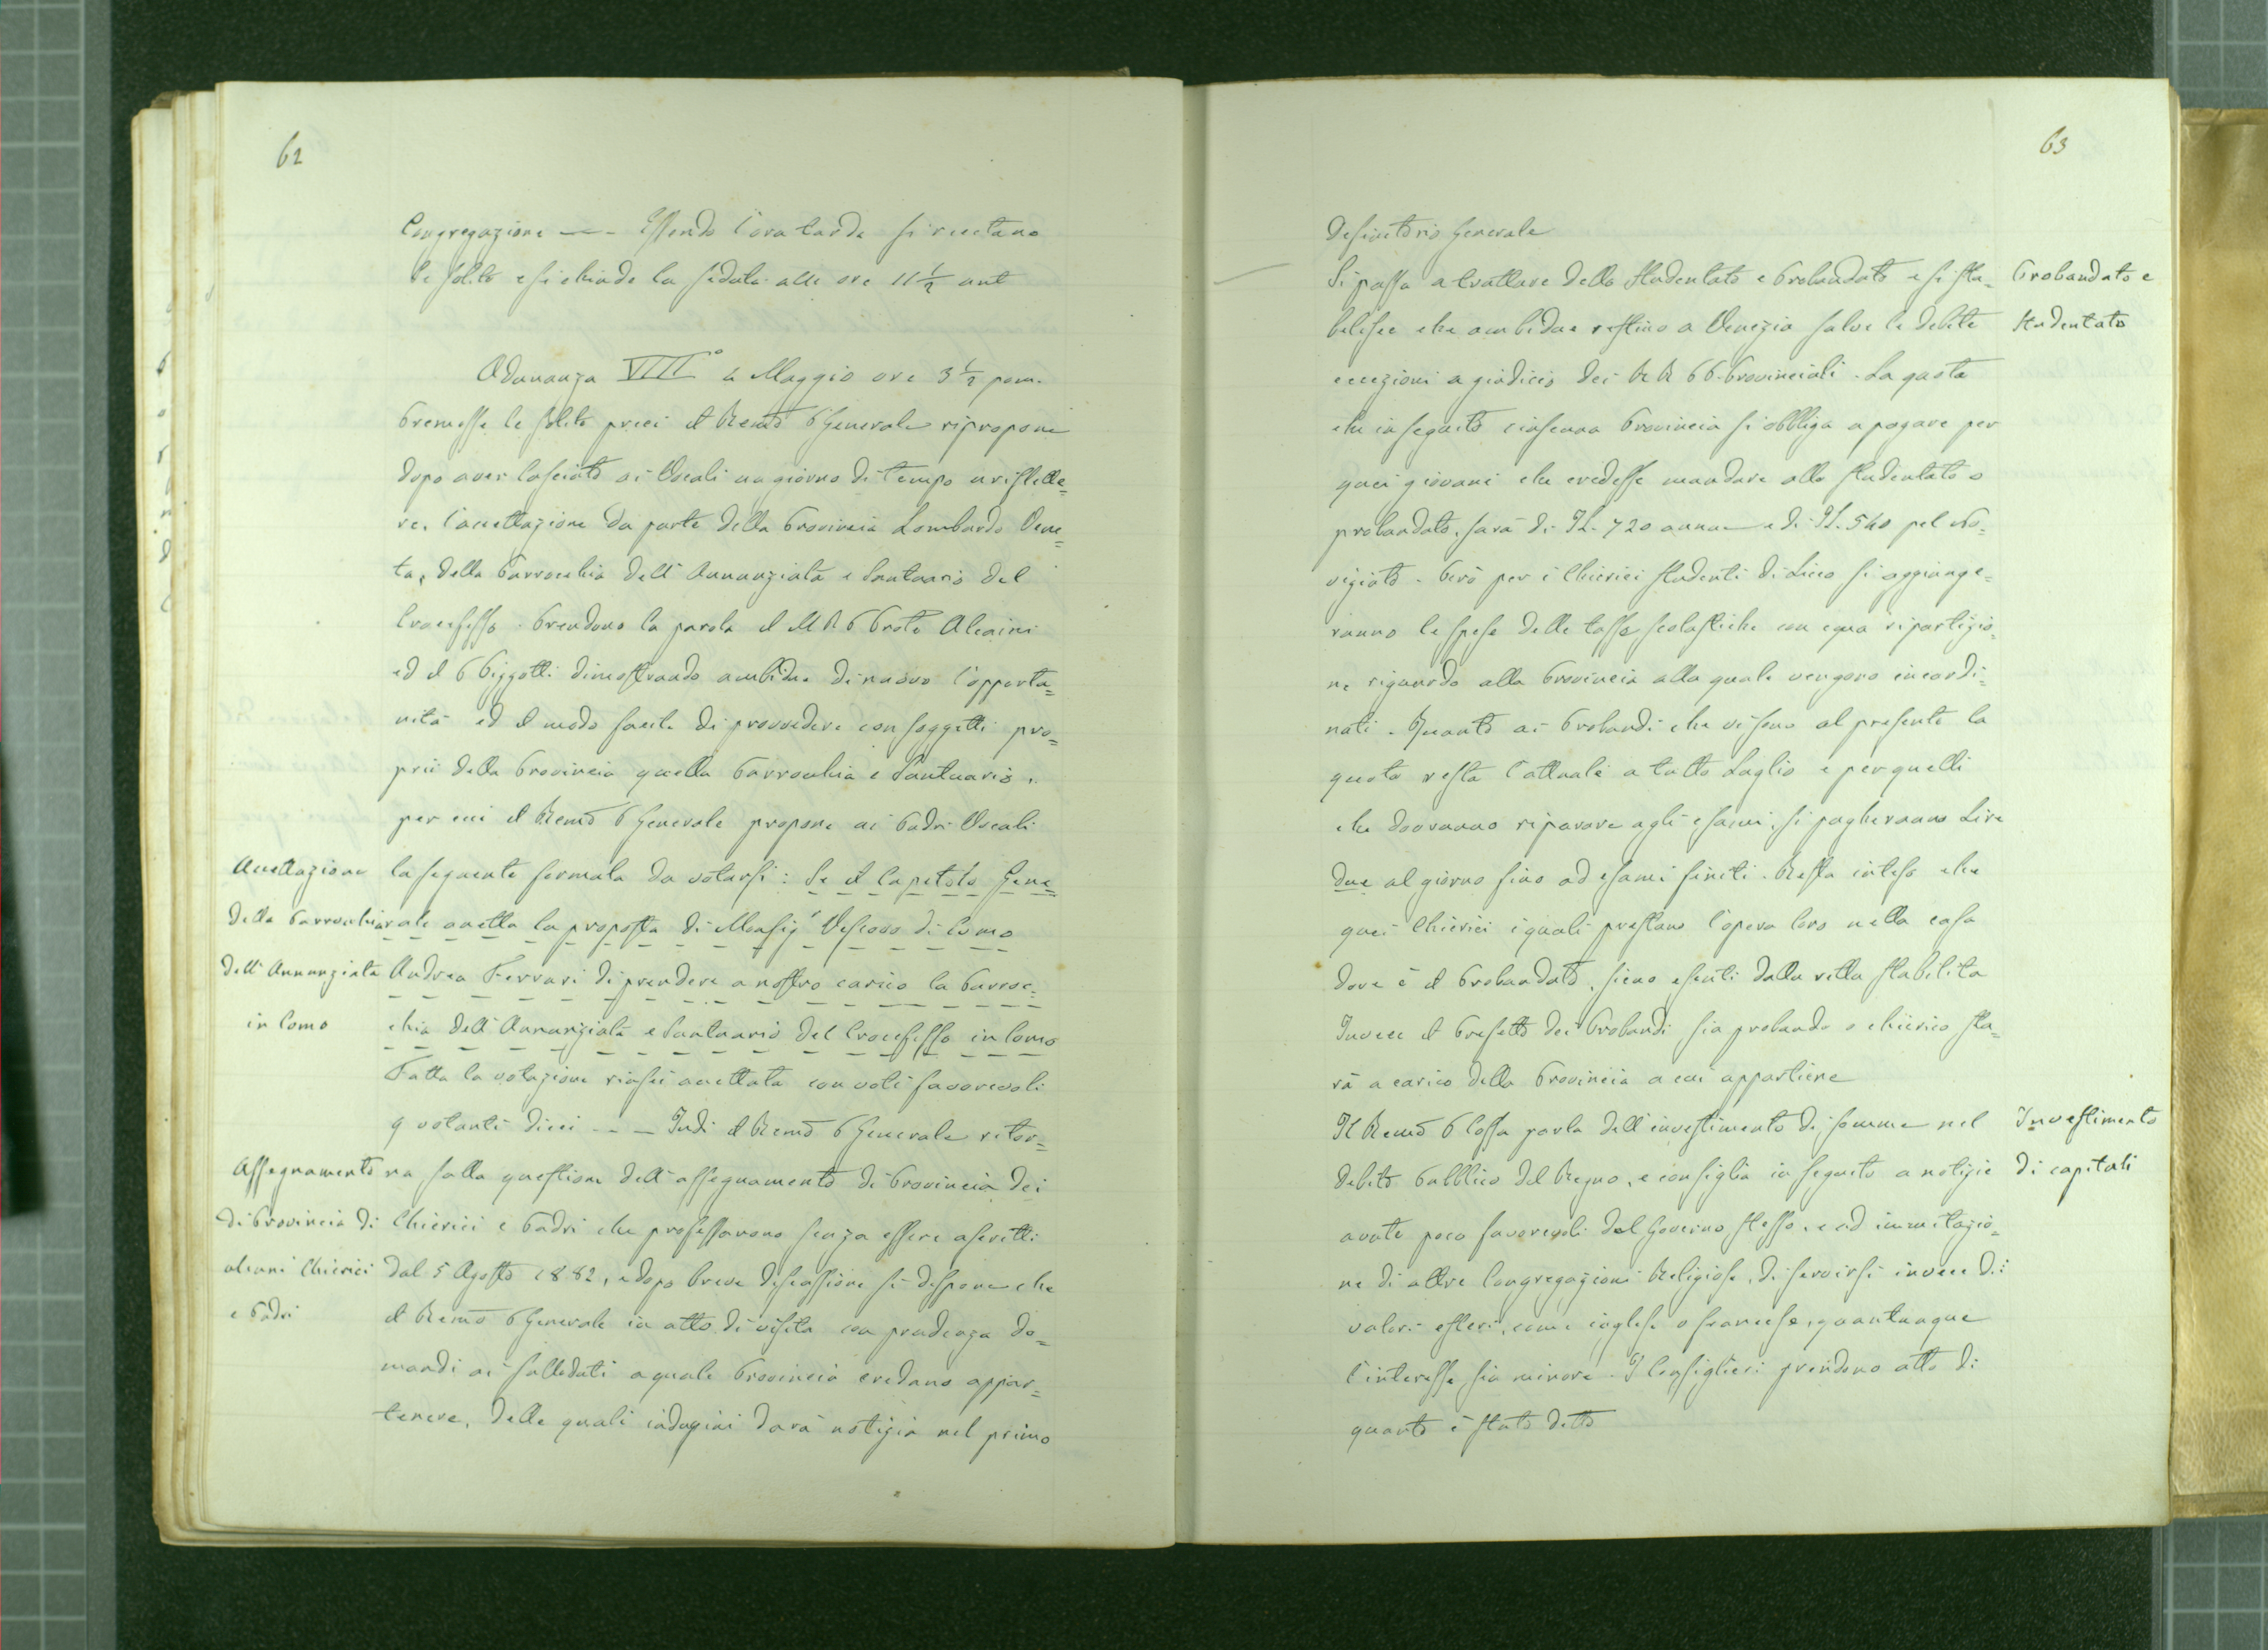 62
Congregazione — Essendo l'ora tarda si recitano
le solite e si chiude la seduta alle ore 11 1/2 ant
Adunanza VIII° 4 Maggio ore 3 1/2 pom.
Premesse le solite preci il Remo P Generale ripropone
dopo aver lasciato ai Vocali un giorno di tempo a riflette=
re, l'accettazione da parte della Provincia Lombardo Vene=
ta, della Parrocchia dell'Annunziata e Santuario del
Crocefisso. Prendono la parola il M R P Prote Alcaini
ed il P Pizzotti dimostrando ambidue di nuovo l'opportu=
nità ed il modo facile di provvedere con soggetti pro=
prii della Provincia quella Parrocchia e Santuario,
per cui il Remo P Generale propone ai Padri Vocali
Accettazione
della Parrocchia
dell'Annunziata
in Como
la seguente formula da votarsi: Se il Capitolo Gene=
rale accetta la proposta di Monsigr Vescovo di Como
Andrea Ferrari di prendere a nostro carico la Parroc=
chia dell'Annunziata e Santuario del Crocefisso in Como
Fatta la votazione riuscì accettata con voti favorevoli
9 votanti dieci - - — Indi il Remo P Generale ritor=
Assegnamento
di Provincia di
alcuni Chierici
e Padri
na sulla questione dell'assegnamento di Provincia dei
Chierici e Padri che professarono senza essere ascritti
dal 5 Agosto 1882, e dopo breve discussione si dispone che
il Remo P Generale in atto di visita con prudenza do=
mandi ai sullodati a quale Provincia credano appar=
tenere, delle quali indagini darà notizia nel primo
63
Definitorio Generale
Si passa a trattare dello Studentato e Probandato e si sta=
bilisce che ambidue restino a Venezia salve le debite
eccezioni a giudicio dei R R P P. Provinciali. La quota
che in seguito ciascuna Provincia si obbliga a pagare per
quei giovani che credesse mandare allo studentato o
probandato, sarà di It. 720 annue e di It. 540 pel No=
viziato. Però per i Chierici studenti di Liceo si aggiunge=
ranno le spese delle tasse scolastiche con equa ripartizio=
ne riguardo alla Provincia alla quale vengono incardi=
nati. Quanto ai Probandi che vi sono al presente la
quota resta l'attuale a tutto Luglio e per quelli
che dovranno riparare agli esami, si pagheranno Lire
due al giorno fino ad esami finiti. Resta inteso che
quei Chierici i quali prestano l'opera loro nella casa
dove è il Probandato, sieno esenti dalla retta stabilita
Invece il Prefetto dei Probandi, sia probando o chierico sta=
rà a carico della Provincia a cui appartiene
Il Remo P Cossa parla dell'investimento di somme nel
debito Pubblico del Regno, e consiglia in seguito a notizie
avute poco favorevoli dal Governo stesso, e ad immitazio=
ne di altre Congregazioni Religiose, di servirsi invece di:
valori esteri, come inglese o francese, quantunque
l'interesse sia minore. I Consiglieri prendono atto di
quanto è stato detto
Probandato e
Studentato
Investimento
di capitali